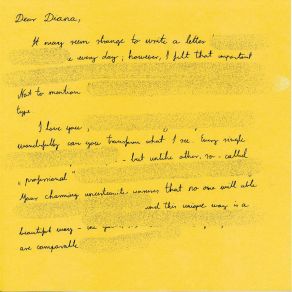 Dear Diana,
It may seem strange to write a letter
every day; however, I felt that important
Not to mention
type
I love you,
wonderfully can you transform what I see. Every single
- but unlike other, so-called
"professional"
Your charming uncertainty, unaware that no one will able
and this unique way is a
beautiful way - use you
are comparable